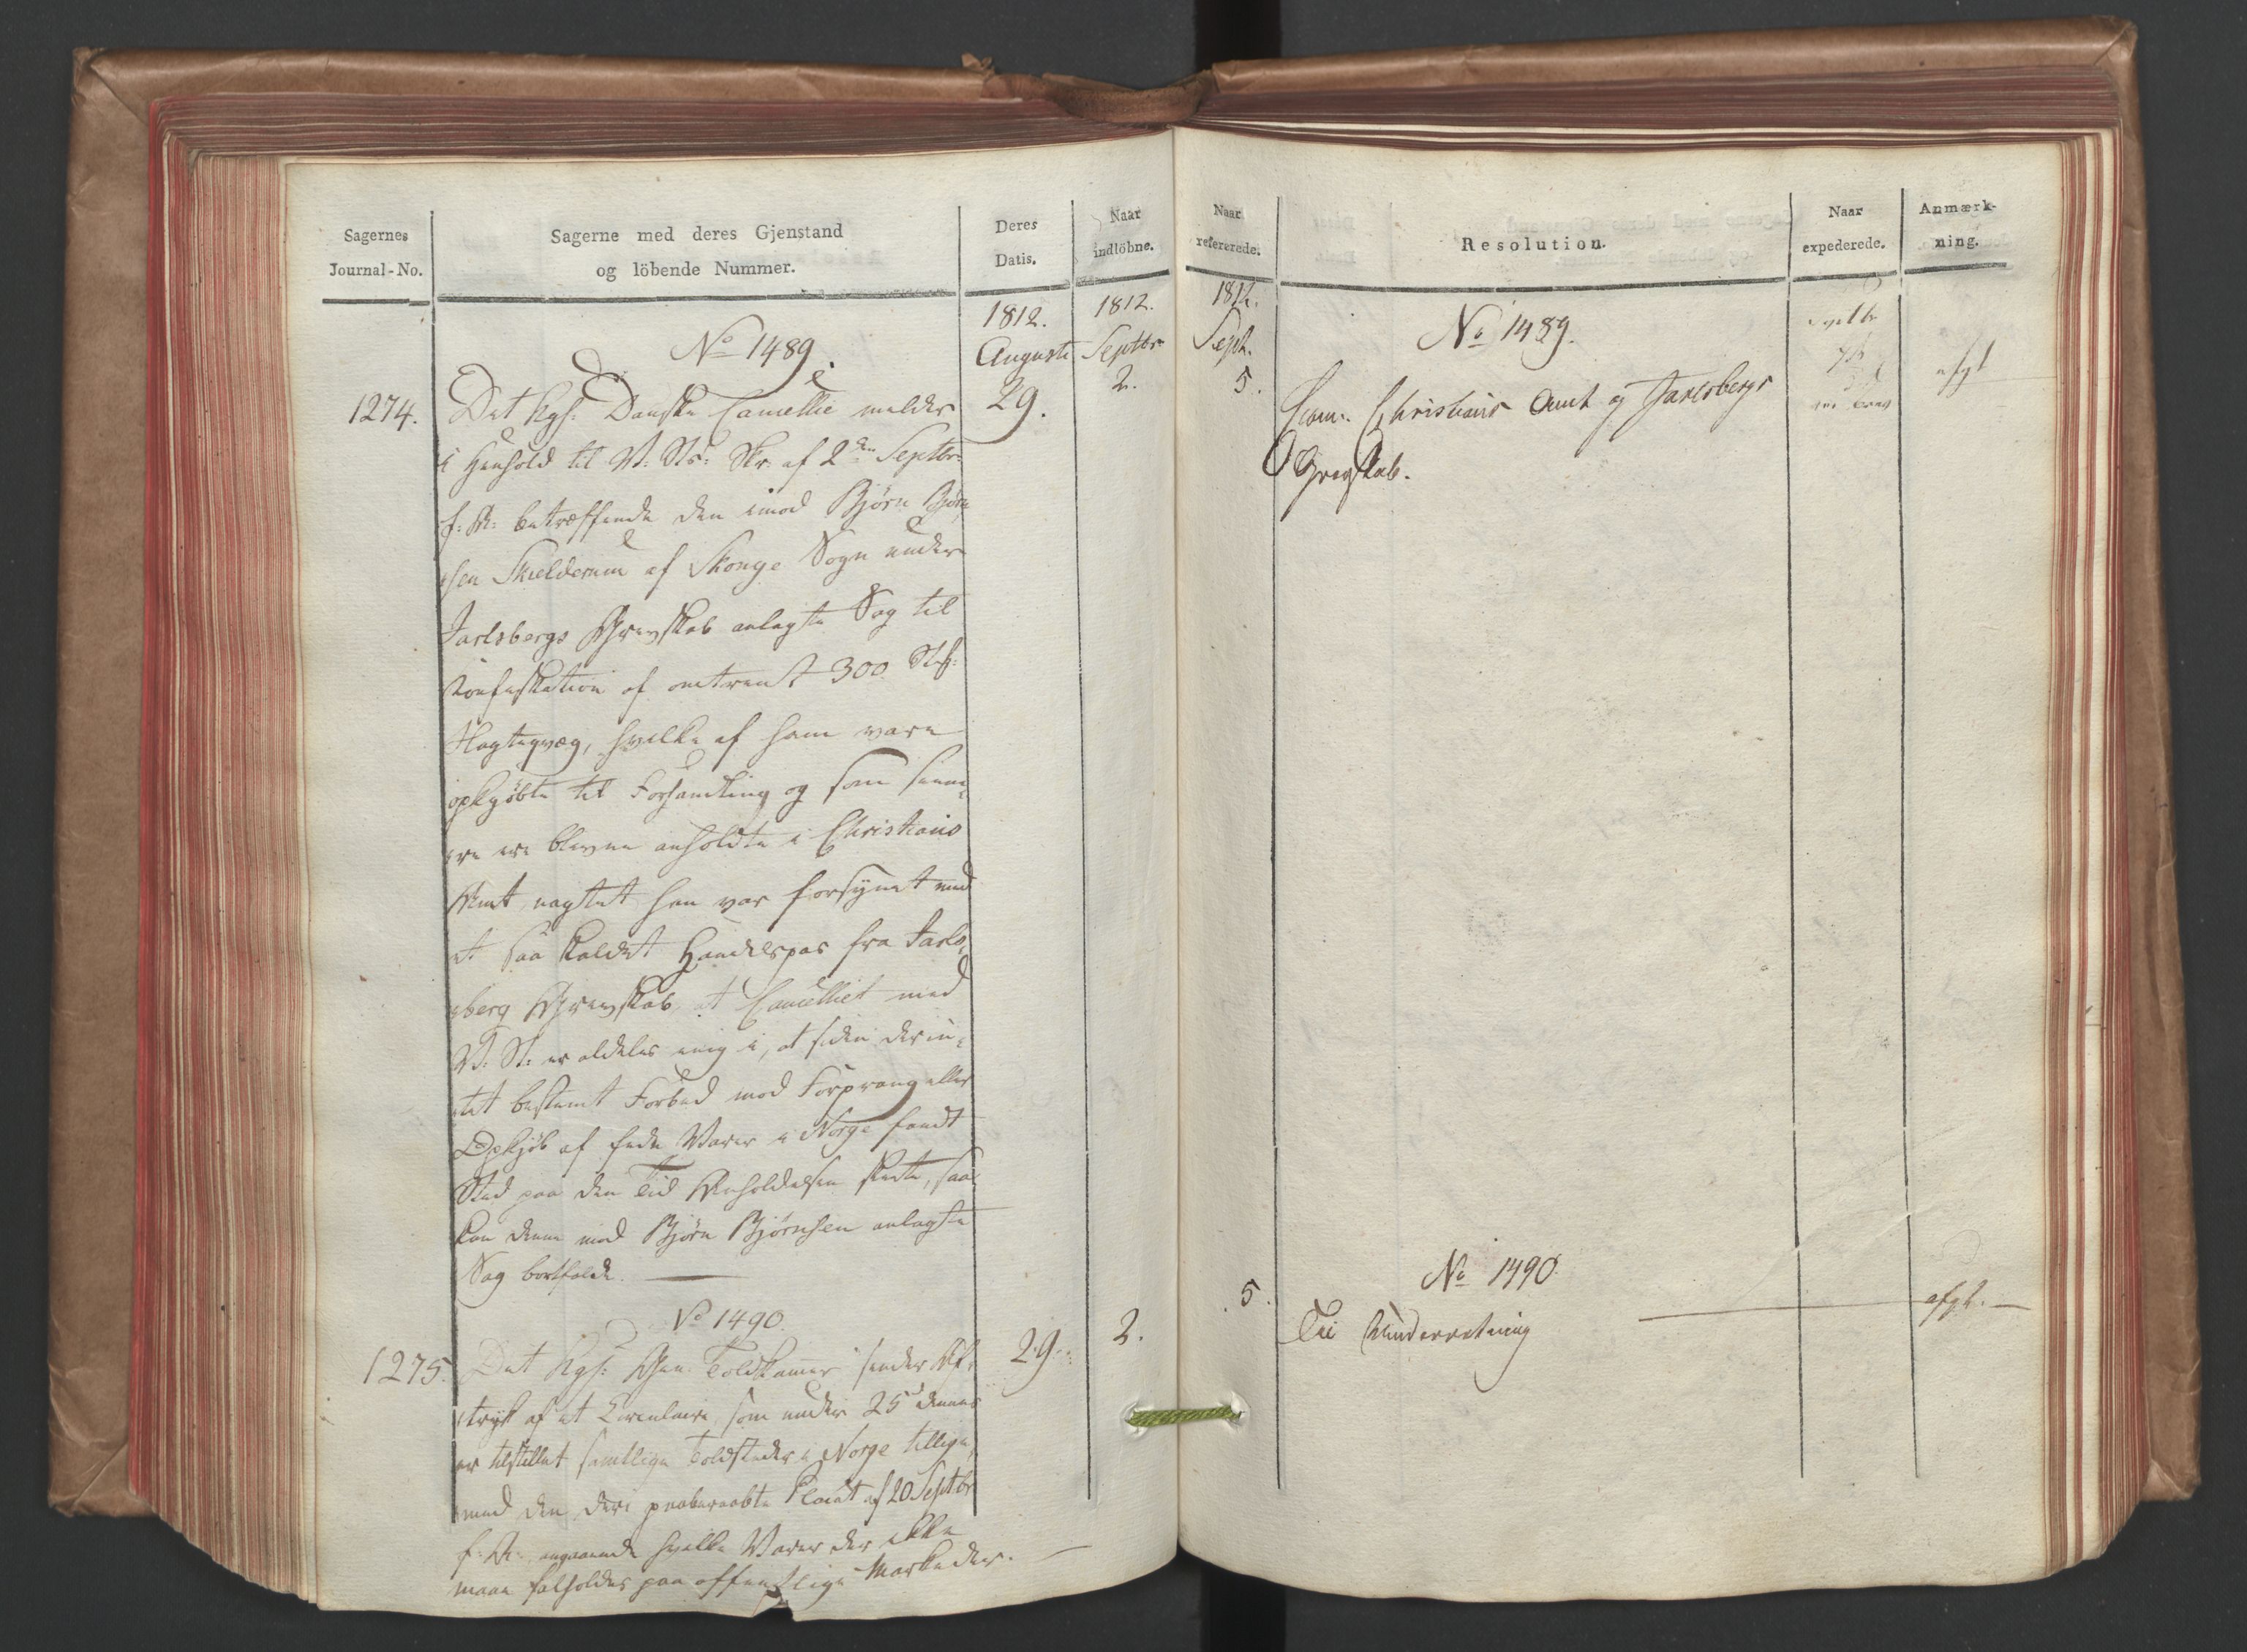 Sagernes
Journal-No.
Sagerne med deres Gjenstand
og löbende Nummer.
Deres
Datis.
Naar
indlöbne.
1812.
Augusti
1812.
Septbr
No 1489.
1274.
29.
2.
Det Kgs: Danske Cancellie melder
i Henhold til V: Sts: Skr. af 2den Septbr:
f: A: betræffende den imod Bjørn Bjørn
sen Skielderum af Skouge Sogn under
Jarlsbergs Grevskab anlagte Sag til
Konfiskation af omtrent 300 Stk:
Slagteqvæg, hvilke af ham vare
opkjøbte til Forhandling og som senne
re ere blevne anholdte i Christians
Amt, uagtet han var forsynet med
et saa kaldet Handelspas fra Jarls
berg Grevskab, at Cancelliet med
V: St: er aldeles enig i, at siden der in
tet bestemt Forbud mod Forprang eller
Opkjøb af fede Varer i Norge fandt
Sted paa den Tid Anholdelsen skete, saa
kan denne mod Bjørn Bjørnsen anlagte
Sag bortfalde.
No 1490.
1275.
29.
2.
Det Kgs: Gen. Toldkammer sender Af
tryk af et Circulaire, som under 25de dennes
er tilstillet samtlige Toldsteder i Norge tillige
med den deri paaberaabte Placat af 20 Septbr
f: A: angaaende hvilke Varer der ikke
maae falholdes paa offentlige Markeder.
Naar
refererede.
Resolution.
Naar
expederede.
Anmærk-
ning.
1812.
Sept.
5.
No 1489.
Christians Amt og Jarlsbergs
Grevskab.
afgl
No 1490
5.
Til Underretning
afgl.